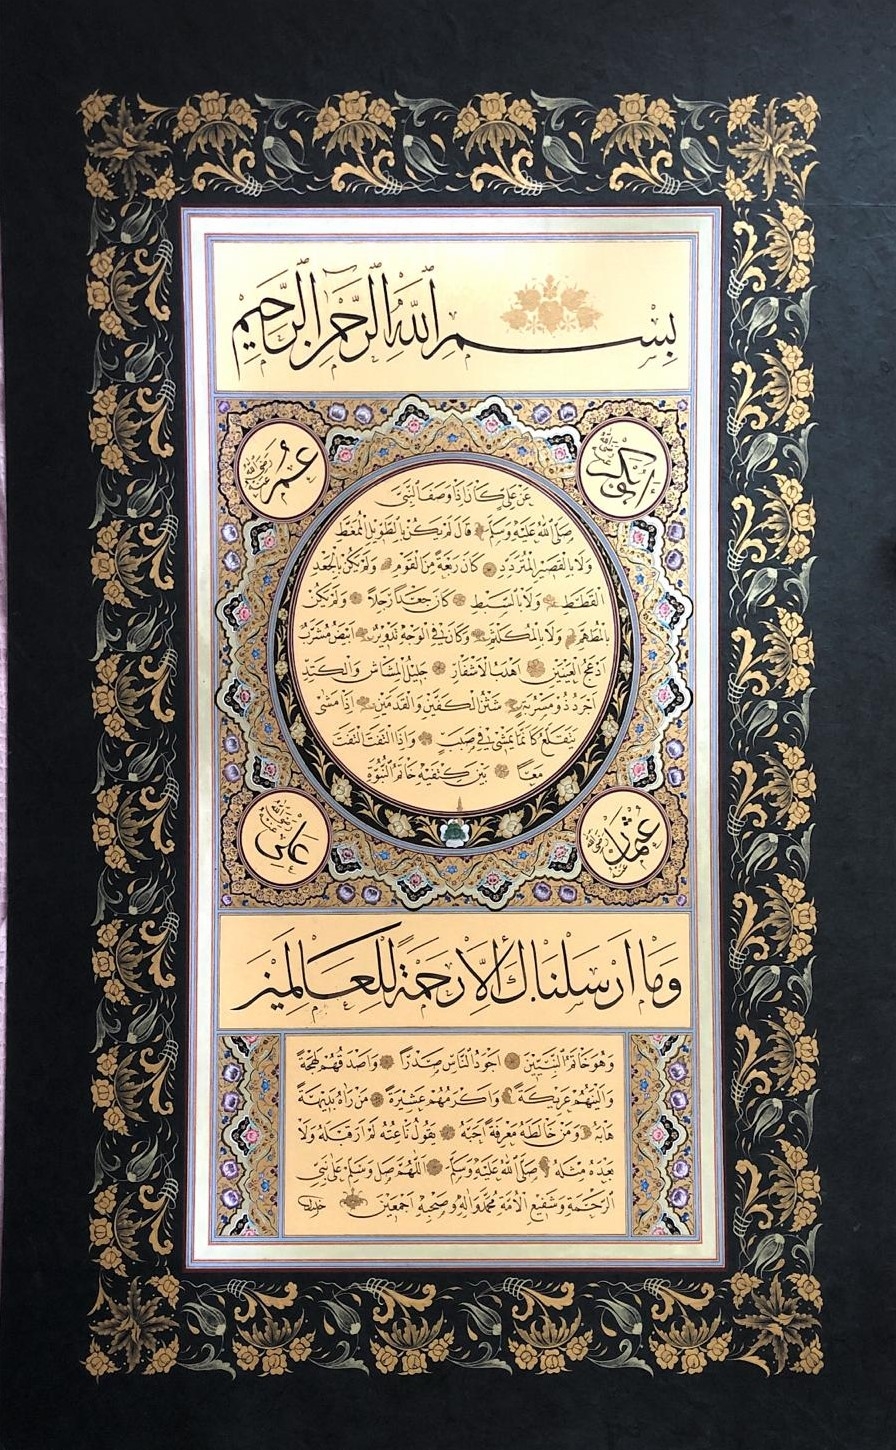 بِسْمِ اللهِ الرَّحْمٰنِ الرَّحِيمِ
ابى بكر رضى الله عنه
عُمَرُ رضى الله عنه
عَنْ عَلِىٍّ كَانَ اِذَا وَصَفَ النَّبِىَّ
صَلَّى اللهُ عَلَيْهِ وَسَلَّمَ قَالَ لَمْ يَكُنْ بِالطَّوِيلِ الْمُمَغَّطِ
وَلَا بِالْقَصِيرِ الْمُتَرَدِّدِ كَانَ رَبْعَةً مِنَ الْقَوْمِ وَلَمْ يَكُنْ بِالْجَعْدِ
الْقَطَطِ وَلَا بِالسَّبِطِ كَانَ جَعْدًا رَجِلًا وَلَمْ يَكُنْ
بِالْمُطَهَّمِ وَلَا بِالْمُكَلْثَمِ وَكَانَ فِى الْوَجْهِ تَدْوِيرٌ اَبْيَضُ مُشْرَبٌ
اَدْعَجُ الْعَيْنَيْنِ اَهْدَبُ الْاَشْفَارِ جَلِيلُ الْمُشَاشِ وَالْكَتَدِ
اَجْرَدُ ذُو مَسْرُبَةٍ شَثْنُ الْكَفَّيْنِ وَالْقَدَمَيْنِ اِذَا مَشَى
يَتَقَلَّعُ كَاَنَّمَا يَمْشِى فِى صَبَبٍ وَاِذَا الْتَفَتَ الْتَفَتَ
مَعًا بَيْنَ كَتِفَيْهِ خَاتَمُ النُّبُوَّةِ
عُثْمَانُ رضى الله عنه
عَلِى رضى الله عنه
وَمَا اَرْسَلْنَاكَ اِلَّا رَحْمَةً لِلْعَالَمِينَ
وَهُوَ خَاتَمُ النَّبِيِّينَ اَجْوَدُ النَّاسِ صَدْرًا وَاَصْدَقُهُمْ لَهْجَةً
وَاَلْيَنُهُمْ عَرِيكَةً وَاَكْرَمُهُمْ عَشِيرَةً مَنْ رَاٰهُ بَدِيهَةً
هَابَهُ وَمَنْ خَالَطَهُ مَعْرِفَةً اَحَبَّهُ يَقُولُ نَاعِتُهُ لَمْ اَرَ قَبْلَهُ وَلَا
بَعْدَهُ مِثْلَهُ صَلَّى اللهُ عَلَيْهِ وَسَلَّمَ اَللّٰهُمَّ صَلِّ وَسَلِّمْ عَلَى نَبِىِّ
الرَّحْمَةِ وَشَفِيعِ الْاُمَّةِ مُحَمَّدٍ وَاٰلِهِ وَصَحْبِهِ اَجْمَعِينَ